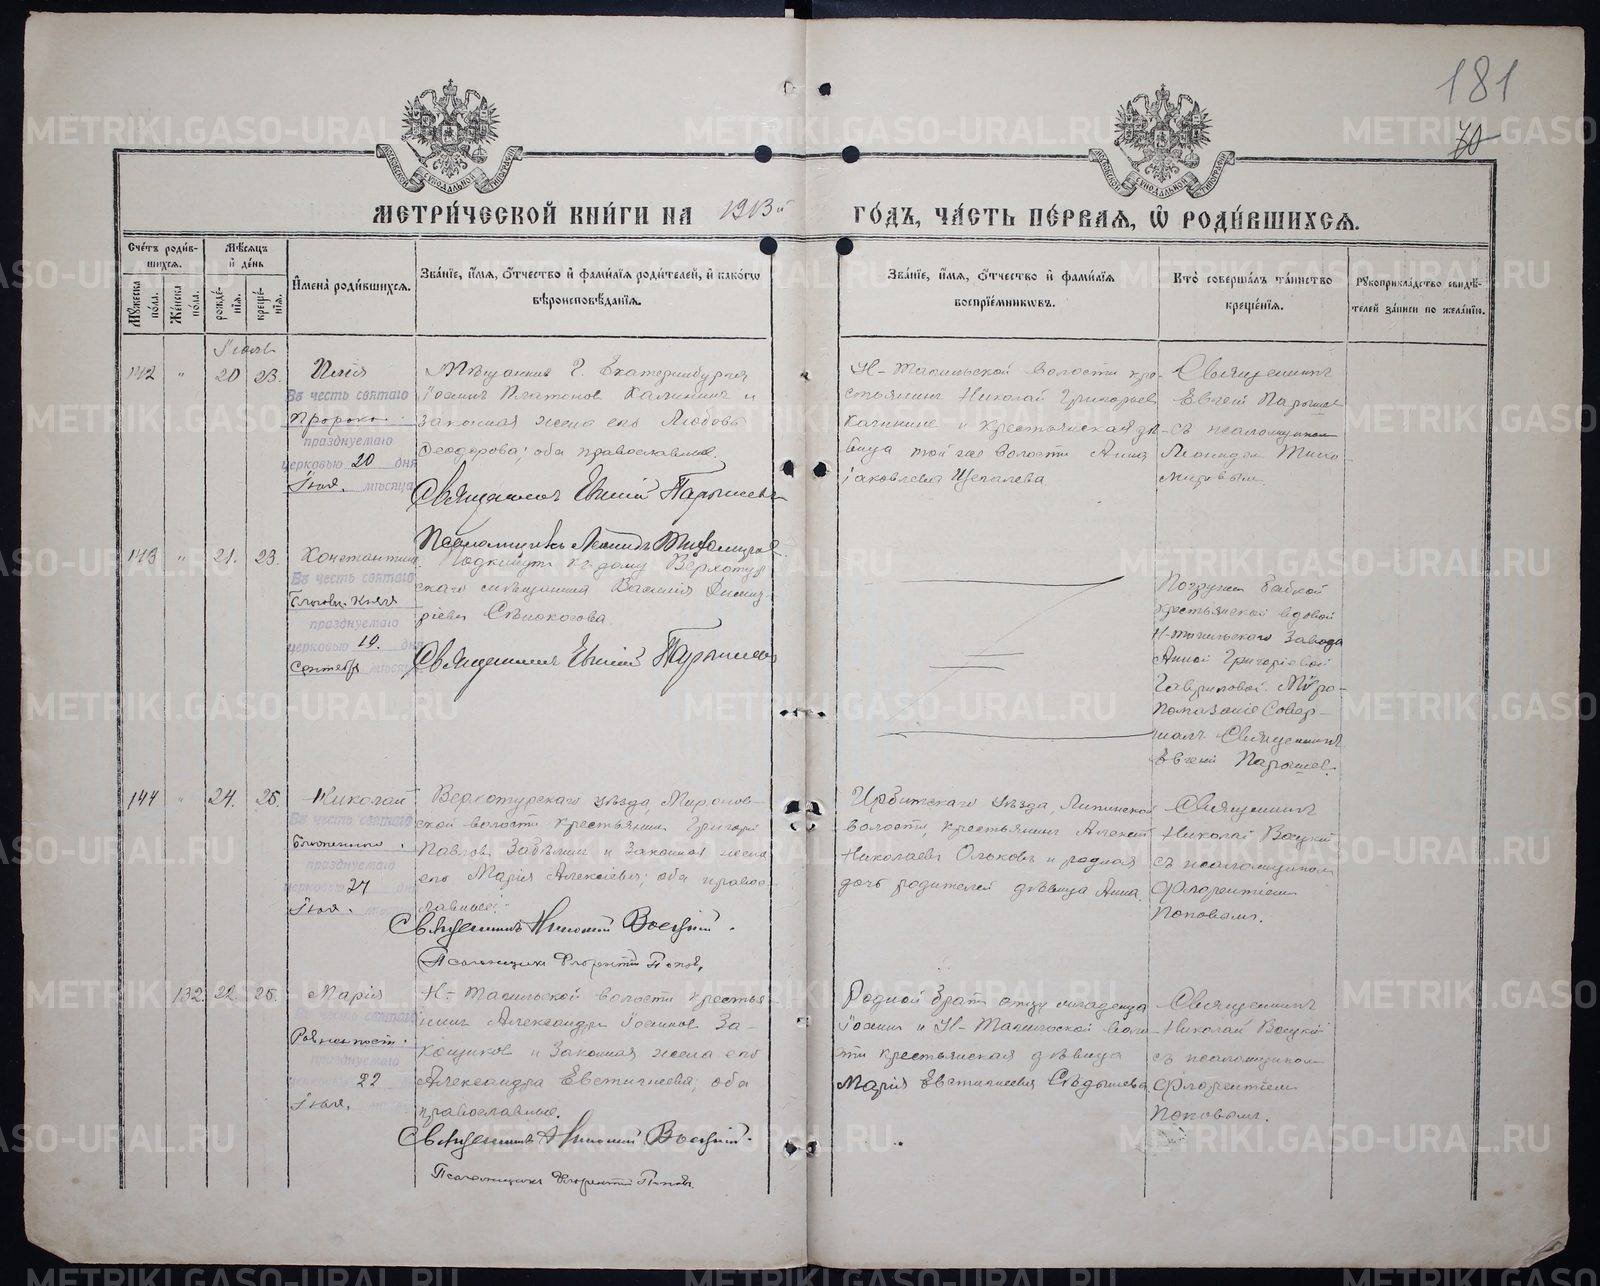 181
70
МЕТРИ́ЧЕСКОЙ КНИ́ГИ НА 1913й ГО́ДЪ, ЧА́СТЬ ПЕ́РВАѦ, Ѡ҆ РОДИ́ВШИХСѦ.
Сче́тъ роди́вшихсѧ.
Мꙋ́жеска по́ла.
Же́нска по́ла.
Мѣ́сѧцъ и҆ де́нь
рожде́нїѧ.
креще́нїѧ.
И҆мена̀ роди́вшихсѧ.
Зва́нїе, и҆́мѧ, ѻ҆́тчество и҆ фами́лїѧ роди́телей, и҆ како́гѡ
вѣроисповѣ́данїѧ.
Зва́нїе, и҆́мѧ, ѻ҆́тчество и҆ фами́лїѧ
воспрїе́мниковъ.
Кто̀ соверша́лъ та́инство
креще́нїѧ.
Рꙋкоприкла́дство свидѣ́-
телей за́писи по жела́нїю.
Іюль
142 " 20 23.
Илія
Въ честь святаго
Пророка
празднуемаго
церковью 20 дня
Іюля. мѣсяца
Мѣщанинъ г. Екатеринбурга
Іоаннъ Платоновъ Калининъ и
законная жена его Любовь
Феодорова; оба православные.
Священникъ Евгеній Парышевъ
Псаломщикъ Леонидъ Тихомировъ
Н-Тагильской волости кре-
стьянинъ Николай Григорьевъ
Калининъ и крестьянская дѣ-
вица той же волости Анна
Іаковлева Щепалева
Священникъ
Евгеній Парышевъ
съ псаломщикомъ
Леонидом Тихо-
мировымъ.
143 " 21. 23.
Константинъ
Въ честь святаго
Благовѣ. Князя
празднуемаго
церковью 19. дня
Сентября мѣсяца
Подкинутъ къ дому Верхотур
скаго мѣщанина Василія Димит
ріева Сѣнокосова
Священникъ Евгеній Парышевъ
Погружен бабкой
крестьянской вдовой
Н-тагильскаго Завода
Анной Григоріевой
Гавриловой. Мѵро-
помазаніе Совер-
шалъ Священникъ
Евгеній Парышевъ.
144 " 24. 25.
Николай
Въ честь святаго
Блаженнаго
празднуемаго
церковью 27 дня
Іюля. мѣсяца
Верхотурскаго уѣзда, Мироно-
ской волости крестьянинъ Григорій
Павловъ Забѣлинъ и законная жена
его Марія Алексіева; оба право-
славные.
Священникъ Николай Воецкій.
Псаломщикъ Флорентій Поповъ.
Ирбитскаго уѣзда, Липинской
волости, крестьянинъ Алексій
Николаевъ Ольковъ и родная
дочь родителей дѣвица Анна.
Священникъ
Николай Воецкій
съ псаломщикомъ
Флорентіемъ
Поповымъ.
132. 22. 25.
Марія
Въ честь святаго
Равноапост.
празднуемаго
22
Іюля.
Н-Тагильской волости крестья
нинъ Александръ Іоанновъ За-
конная жена его
Александра Евстигнеева; оба
православные.
Священникъ Николай Воецкій.
Псаломщикъ Флорентій Поповъ.
Родной братъ отцу младенца
Іоаннъ и Н-Тагильской воло
сти крестьянская дѣвица
Марія Евстигнеева Сѣдышева
Священникъ
Николай Воецкій
съ псаломщикомъ
Флорентіемъ
Поповымъ.
METRIKI.GASO-URAL.RU